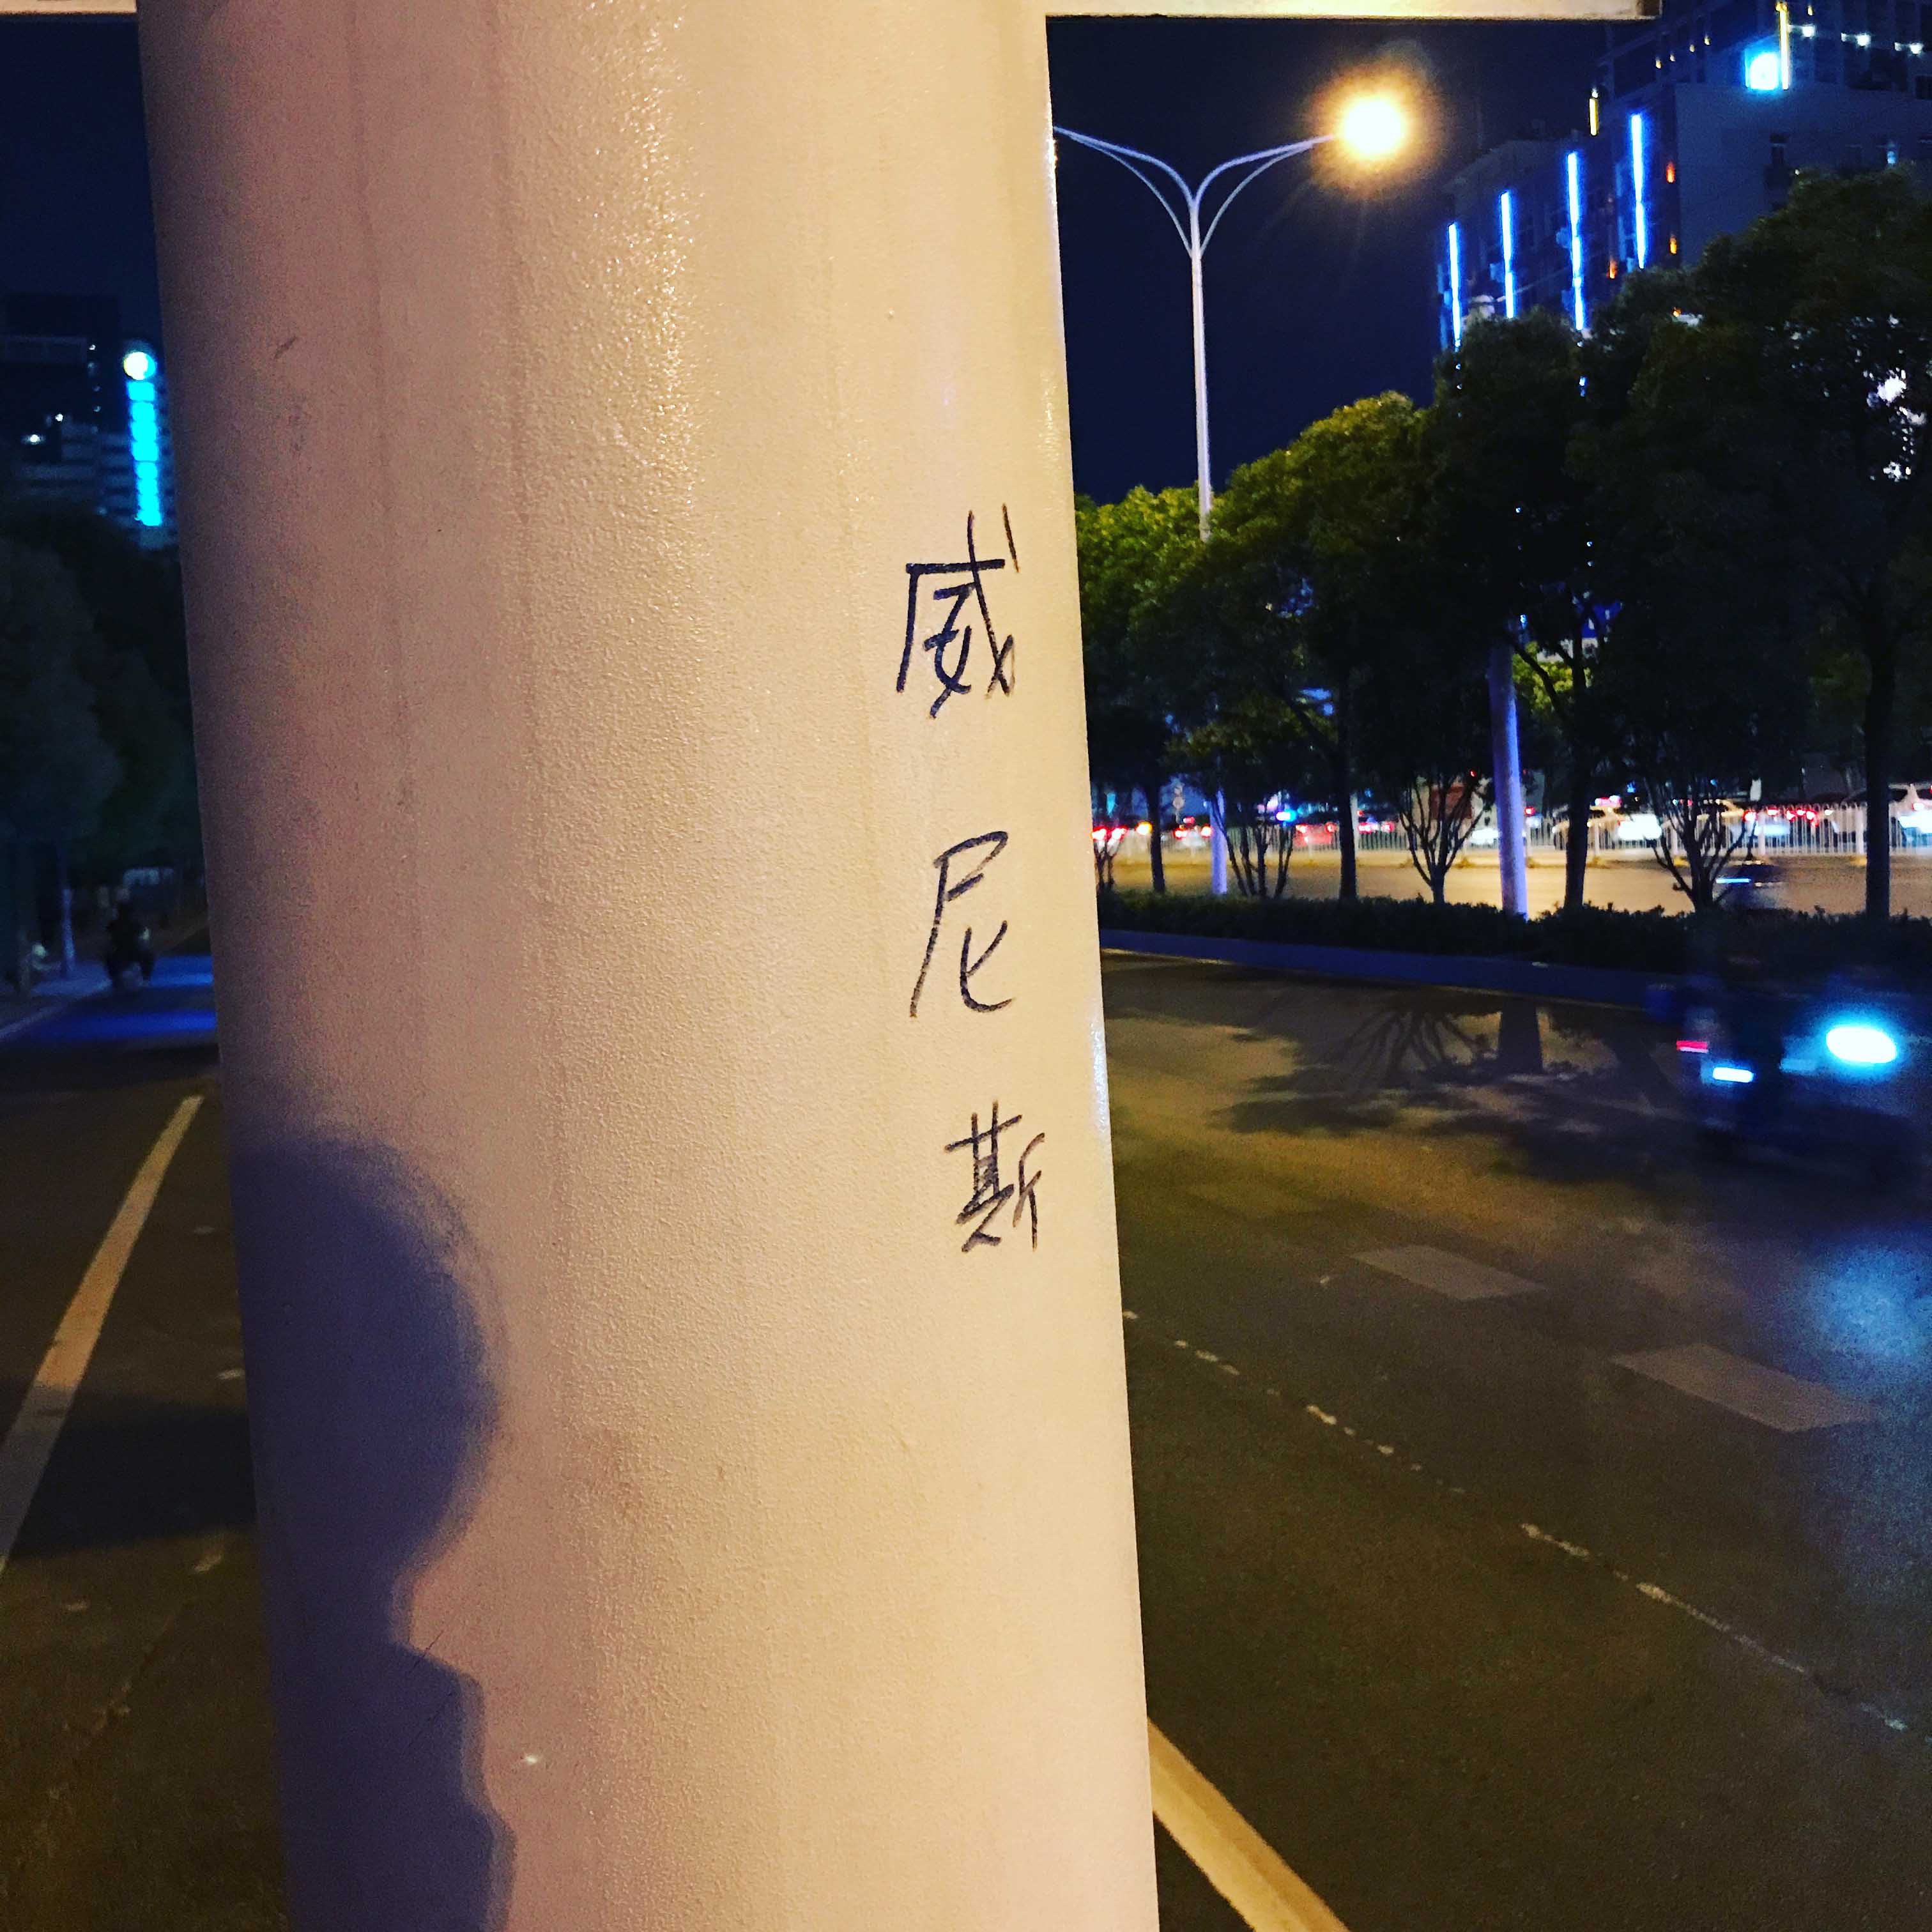 威尼斯